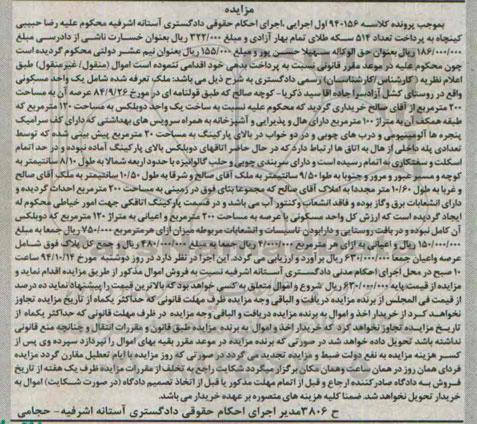 مزایده
بموجب پرونده کلاسه ۹۴۰۱۵۶ اول اجرایی ،اجرای احکام حقوقی دادگستری آستانه اشرفیه محکوم علیه رضا حبیبی
کینچاه به پرداخت تعداد ۵۱۴ سکه طلای تمام بهار آزادی و مبلغ ۳۲۲/۰۰۰ ریال بعنوان خسارت ناشی از دادرسی مبلغ
۱۸۶/۰۰۰/۰۰۰ ریال بعنوان حق الوکاله سهیلا حسن پور و مبلغ ۱۵۵/۰۰۰/۰۰۰ ریال بعنوان نیم عشر دولتی محکوم گردیده است
چون محکوم علیه در موعد مقرر قانونی نسبت به پرداخت بدهی خود اقدامی ننموده است اموال (منقول/غیرمنقول) طبق
اعلام نظریه (کارشناس/کارشناسان) رسمی دادگستری به شرح ذیل می باشد: ملک تعرفه شده شامل یک واحد مسکونی
واقع در روستای کشل آزاد سرا جاده آقا سید ذکریا- کوچه صالح که طبق قولنامه ای در مورخ ۸۴/۹/۲۶ عرصه آن به مساحت
۲۰۰ مترمربع از آقای صالح خریداری گردید که محکوم علیه نسبت به ساخت یک واحد دوبلکس به مساحت ۱۲۰ مترمربع که
طبقه همکف آن به متراژ ۱۰۰ مترمربع دارای هال و پذیرایی و آشپزخانه به همراه سرویس های بهداشتی که دارای کف سرامیک
پنجره ها آلومینیومی و درب های چوبی و در دو خواب در بالای پارکینگ به مساحت ۲۰ مترمربع پیش بینی شده که توسط
تعدادی پله داخلی از هال به اتاق ها ارتباط دارد که در حال حاضر اتاقهای دوبلکس بالای پارکینگ آماده نبوده و در حد اتمام
اسکلت و سفتکاری به اتمام رسیده است و دارای سربندی چوبی و حلب گالوانیزه با حدود اربعه شمالا به طول ۸/۱۰ سانتیمتر به
کوچه و مسیر عبور و مرور و جنوبا به طول ۹/۵۰ سانتیمتر به ملک آقای صالح و شرقا به طول ۱۰/۵۰ سانتیمتر به ملک آقای صالح
و غربا به طول ۱۰/۶۰ متر مجددا به املاک آقای صالح که مجموعا بنای فوق در زمینی به مساحت ۲۰۰ مترمربع احداث گردیده و
دارای انشعابات برق و گاز بوده و فاقد انشعاب و کنتور آب می باشد و در قسمت پارکینگ اتاقکی جهت امور خیاطی محکوم له
ایجاد گردیده است که ارزش کل واحد مسکونی با عرصه به مساحت ۲۰۰ مترمربع و اعیانی به متراژ ۱۲۰ مترمربع که دوبلکس
آن کامل نبوده و در بافت روستایی و دارابودن تاسیسات و انشعابات مربوطه میزان ارزای هرمترمربع ۷۵۰/۰۰۰ ریال جمعا به مبلغ
۱۵۰/۰۰۰/۰۰۰ ریال و اعیانی به ازای هر مترمربع ۴/۰۰۰/۰۰۰ ریال جمعا به مبلغ ۴۸۰/۰۰۰/۰۰۰ ریال و جمع کل پلاک فوق شامل
عرصه واعیان جمعا ۶۳۰/۰۰۰/۰۰۰ ریال برآورد و ارزیابی می گردد. این اجرا در نظر دارد در روز دوشنبه مورخ ۹۴/۱۰/۱۴ ساعت
۱۰ صبح در محل اجرای احکام مدنی دادگستری آستانه اشرفیه نسبت به فروش اموال مذکور از طریق مزایده اقدام نماید و
مزایده از قیمت پایه ۶۳۰/۰۰۰/۰۰۰ ریال شروع و اموال متعلق به کسی خواهد بود که بالاترین قیمت را پیشنهاد نماید ده درصد
از قیمت فی المجلس از برنده مزایده دریافت و الباقی وجه مزایده ظرف مهلت قانونی که حداکثر یکماه از تاریخ مزایده تجاوز
نخواهد کرد از خریدار اخذ و اموال به برنده مزایده دریافت و الباقی وجه مزایده در ظرف مهلت قانونی که حداکثر یکماه از
تاریخ مزایده تجاوز نخواهد کرد که خریدار اخذ و اموال به برنده مزایده طبق قانون و مقررات انتقال و چنانچه منع قانونی
نداشته باشد تحویل داده خواهد شد در صورتی که برنده مزایده در موعد مقرر بقیه بهای اموال را نپردازد سپرده وی پس از
کسر هزینه مزایده به نفع دولت ضبط و مزایده تجدید می گردد در صورتی که روز مزایده با ایام تعطیل مقارن گردد مزایده
فردای همان روز در همان ساعت وهمان مکان برگزار میگردد شکایت راجع به تخلف از مقررات مزایده ظرف یک هفته از تاریخ
فروش به دادگاه صادرکننده ارجاع و قبل از اتمام مهلت مذکور یا قبل از اتخاذ تصمیم دادگاه (در صورت شکایت) اموال به
خریدار تحویل نخواهد شد. ضمنا کلیه هزینه های متصوره بر عهده خریدار می باشد.
ح ۳۸۰۶ مدیر اجرای احکام حقوقی دادگستری آستانه اشرفیه- حجامی